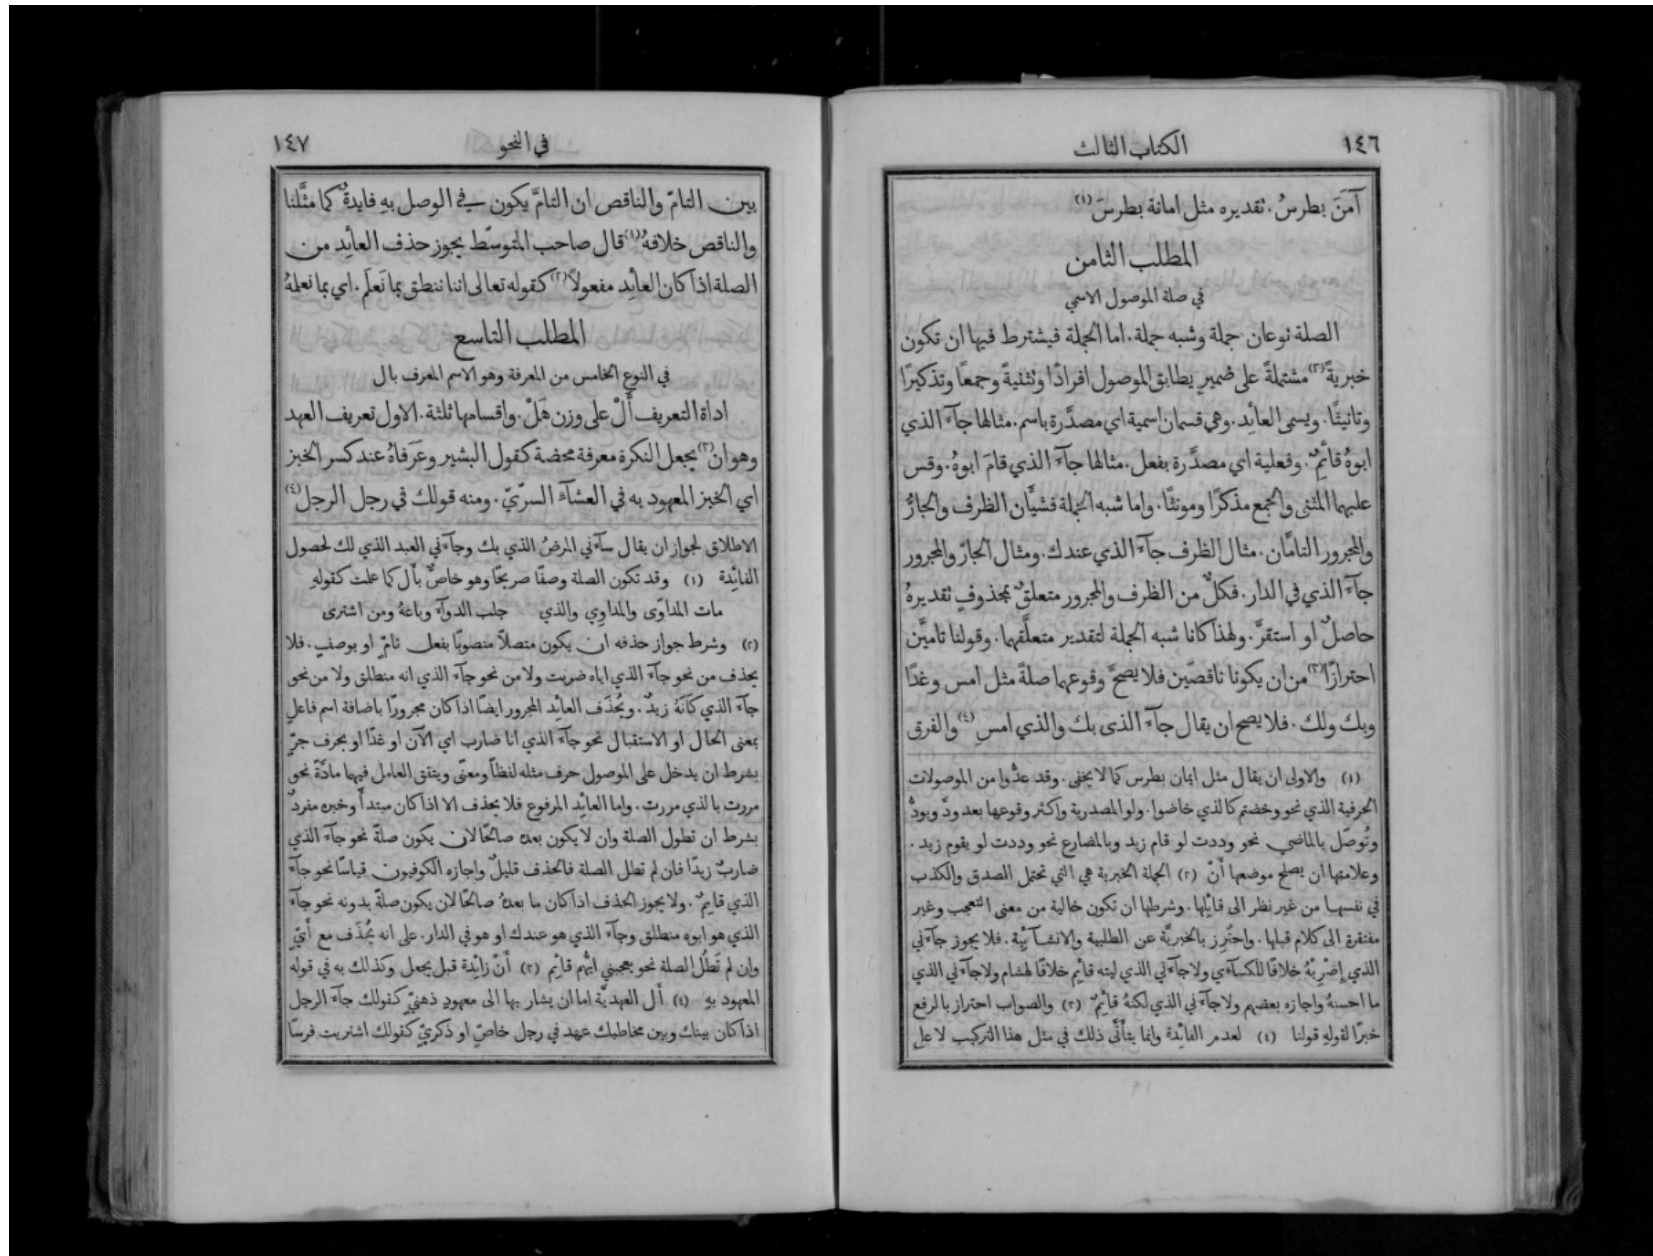 ١٤٦
الكتاب الثالث
آمَنَ بطرسُ. تقديره مثل امانة بطرسَ (١)
المطلب الثامن
في صلة الموصول الاسمي
الصلة نوعان جملة وشبه جملة. اما الجملة فيشترط فيها ان تكون
خبريةً (٢) مشتملةً على ضميرٍ يطابق الموصول افرادًا وتثنيةً وجمعًا وتذكيرًا
وتانيثًا. ويسمى العائد. وهي قسمان اسمية اي مصدَّرة باسم. مثالها جآءَ الذي
ابوهُ قائمٌ. وفعلية اي مصدَّرة بفعل. مثالها جآءَ الذي قامَ ابوهُ. وقس
عليهما المثنى والجمع مذكرًا ومونثًا. واما شبه الجملة فشيَّان الظرف والجارُّ
والمجرور التامَّان. مثال الظرف جآءَ الذي عندك. ومثال الجارّ والمجرور
جآءَ الذي في الدار. فكلٌّ من الظرف والمجرور متعلقٌ بمحذوفٍ تقديرهُ
حاصلٌ او استقرَّ. ولهذا كانا شبه الجملة لتقدير متعلَّقهما. وقولنا تامَّين
احترازًا (٣) من ان يكونا ناقصَين فلا يصحُّ وقوعهما صلةً مثل امس وغدًا
وبك ولك. فلا يصح ان يقال جآءَ الذى بك والذي امسِ (٤) والفرق
(١) والاولى ان يقال مثل ايمان بطرس كما لا يخفى. وقد عدُّوا من الموصولات
الحرفية الذي نحو وخضتم كالذي خاضوا. ولو المصدرية واكثر وقوعها بعد ودَّ ويودُّ
وتُوصَل بالماضي نحو وددت لو قام زيد وبالمضارع نحو وددت لو يقوم زيد.
وعلامتها ان يصلح موضعها أَنْ (٢) الجملة الخبرية هي التي تحتمل الصدق والكذب
في نفسها من غير نظر الى قائلها. وشرطها ان تكون خالية من معنى التعجب وغير
مفتقرة الى كلام قبلها. واحتُرِز بالخبريَّة عن الطلبية والانشآئية. فلا يجوز جآءَني
الذي إضْرِبْهُ خلافًا للكسآءي ولا جآءَني الذي ليته قائم خلافًا لهشام ولا جآءَني الذي
ما احسنهُ واجازه بعضهم ولا جآءَني الذي لكنهُ قائمٌ (٣) والصواب احتراز بالرفع
خبرًا لقولهِ قولنا (٤) لعدم الفائدة وانما يتأَتَّى ذلك في مثل هذا التركيب لا على
في النحو
١٤٧
بين التامّ والناقص ان التامَّ يكون في الوصل بهِ فايدةٌ كما مثَّلنا
والناقص خلافهُ (١) قال صاحب المتوسّط يجوز حذف العائِد من
الصلة اذا كان العائِد مفعولاً (٢) كقوله تعالى اننا ننطق بما نَعلَم. اي بما نعلمهُ
المطلب التاسع
في النوع الخامس من المعرفة وهو الاسم المعرف بال
اداة التعريف أَلْ على وزن هَلْ. واقسامها ثلثة. الاول تعريف العهد
وهو ان (٣) يجعل النكرة معرفة محضة كقول البشير وعَرَفاهُ عند كسر الخبز
اي الخبز المعهود به في العشآءِ السرّيّ. ومنه قولك في رجل الرجل (٤)
الاطلاق لجواز ان يقال سآءَني المرضُ الذي بك وجآءَني العبد الذي لك لحصول
الفائِدة (١) وقد تكون الصلة وصفًا صريحًا وهو خاصٌّ بأَل كما علمت كقولهِ
مات المداوَى والمداوِي والذي جلب الدوآءَ وباعهُ ومن اشترى
(٢) وشرط جواز حذفه ان يكون متصلاً منصوبًا بفعل تامّ او بوصفٍ. فلا
يحذف من نحو جآءَ الذي اياه ضربت ولا من نحو جآءَ الذي انه منطلق ولا من نحو
جآءَ الذي كَأَنَّهُ زيدٌ. ويُحذَف العائِد المجرور ايضًا اذا كان مجرورًا باضافة اسم فاعلٍ
بمعنى الحال او الاستقبال نحو جآءَ الذي انا ضارب اي الآن او غدًا او بحرف جرٍّ
بشرط ان يدخل على الموصول حرف مثله لفظًا ومعنًى ويتفق العامل فيهما مادَّةً نحو
مررت بالذي مررت. واما العائِد المرفوع فلا يحذف الا اذا كان مبتدأً وخبره مفردٌ
بشرط ان تطول الصلة وان لا يكون بعده صالحًا لان يكون صلةً نحو جآءَ الذي
ضاربٌ زيدًا فان لم تطل الصلة فالحذف قليلٌ واجازه الكوفيون قياسًا نحو جآءَ
الذي قايمٌ. ولا يجوز الحذف اذا كان ما بعدهُ صالحًا لان يكون صلةً بدونه نحو جآءَ
الذي هو ابوه منطلق وجآءَ الذي هو عندك او هو في الدار. على انه يُحذَف مع أَيّ
وان لم تَطُل الصلة نحو يعجبني ايُّهم قائِم (٣) أَنْ زائِدة قبل يجعل وكذلك به في قوله
المعهود بهِ (٤) أَل العهديَّة اما ان يشار بها الى معهودٍ ذهنيّ كقولك جآءَ الرجل
اذا كان بينك وبين مخاطبك عهد في رجل خاصّ او ذكريّ كقولك اشتريت فرسًا